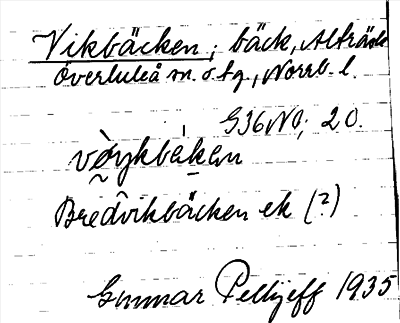 Vikbäcken; bäck, Alträsk
Överluleå sn. o. tg., Norrb. l.
G36 NO; 20.
vò̰ykbèkan
Bredvikbäcken ek (?)
Gunnar Pellijeff 1935